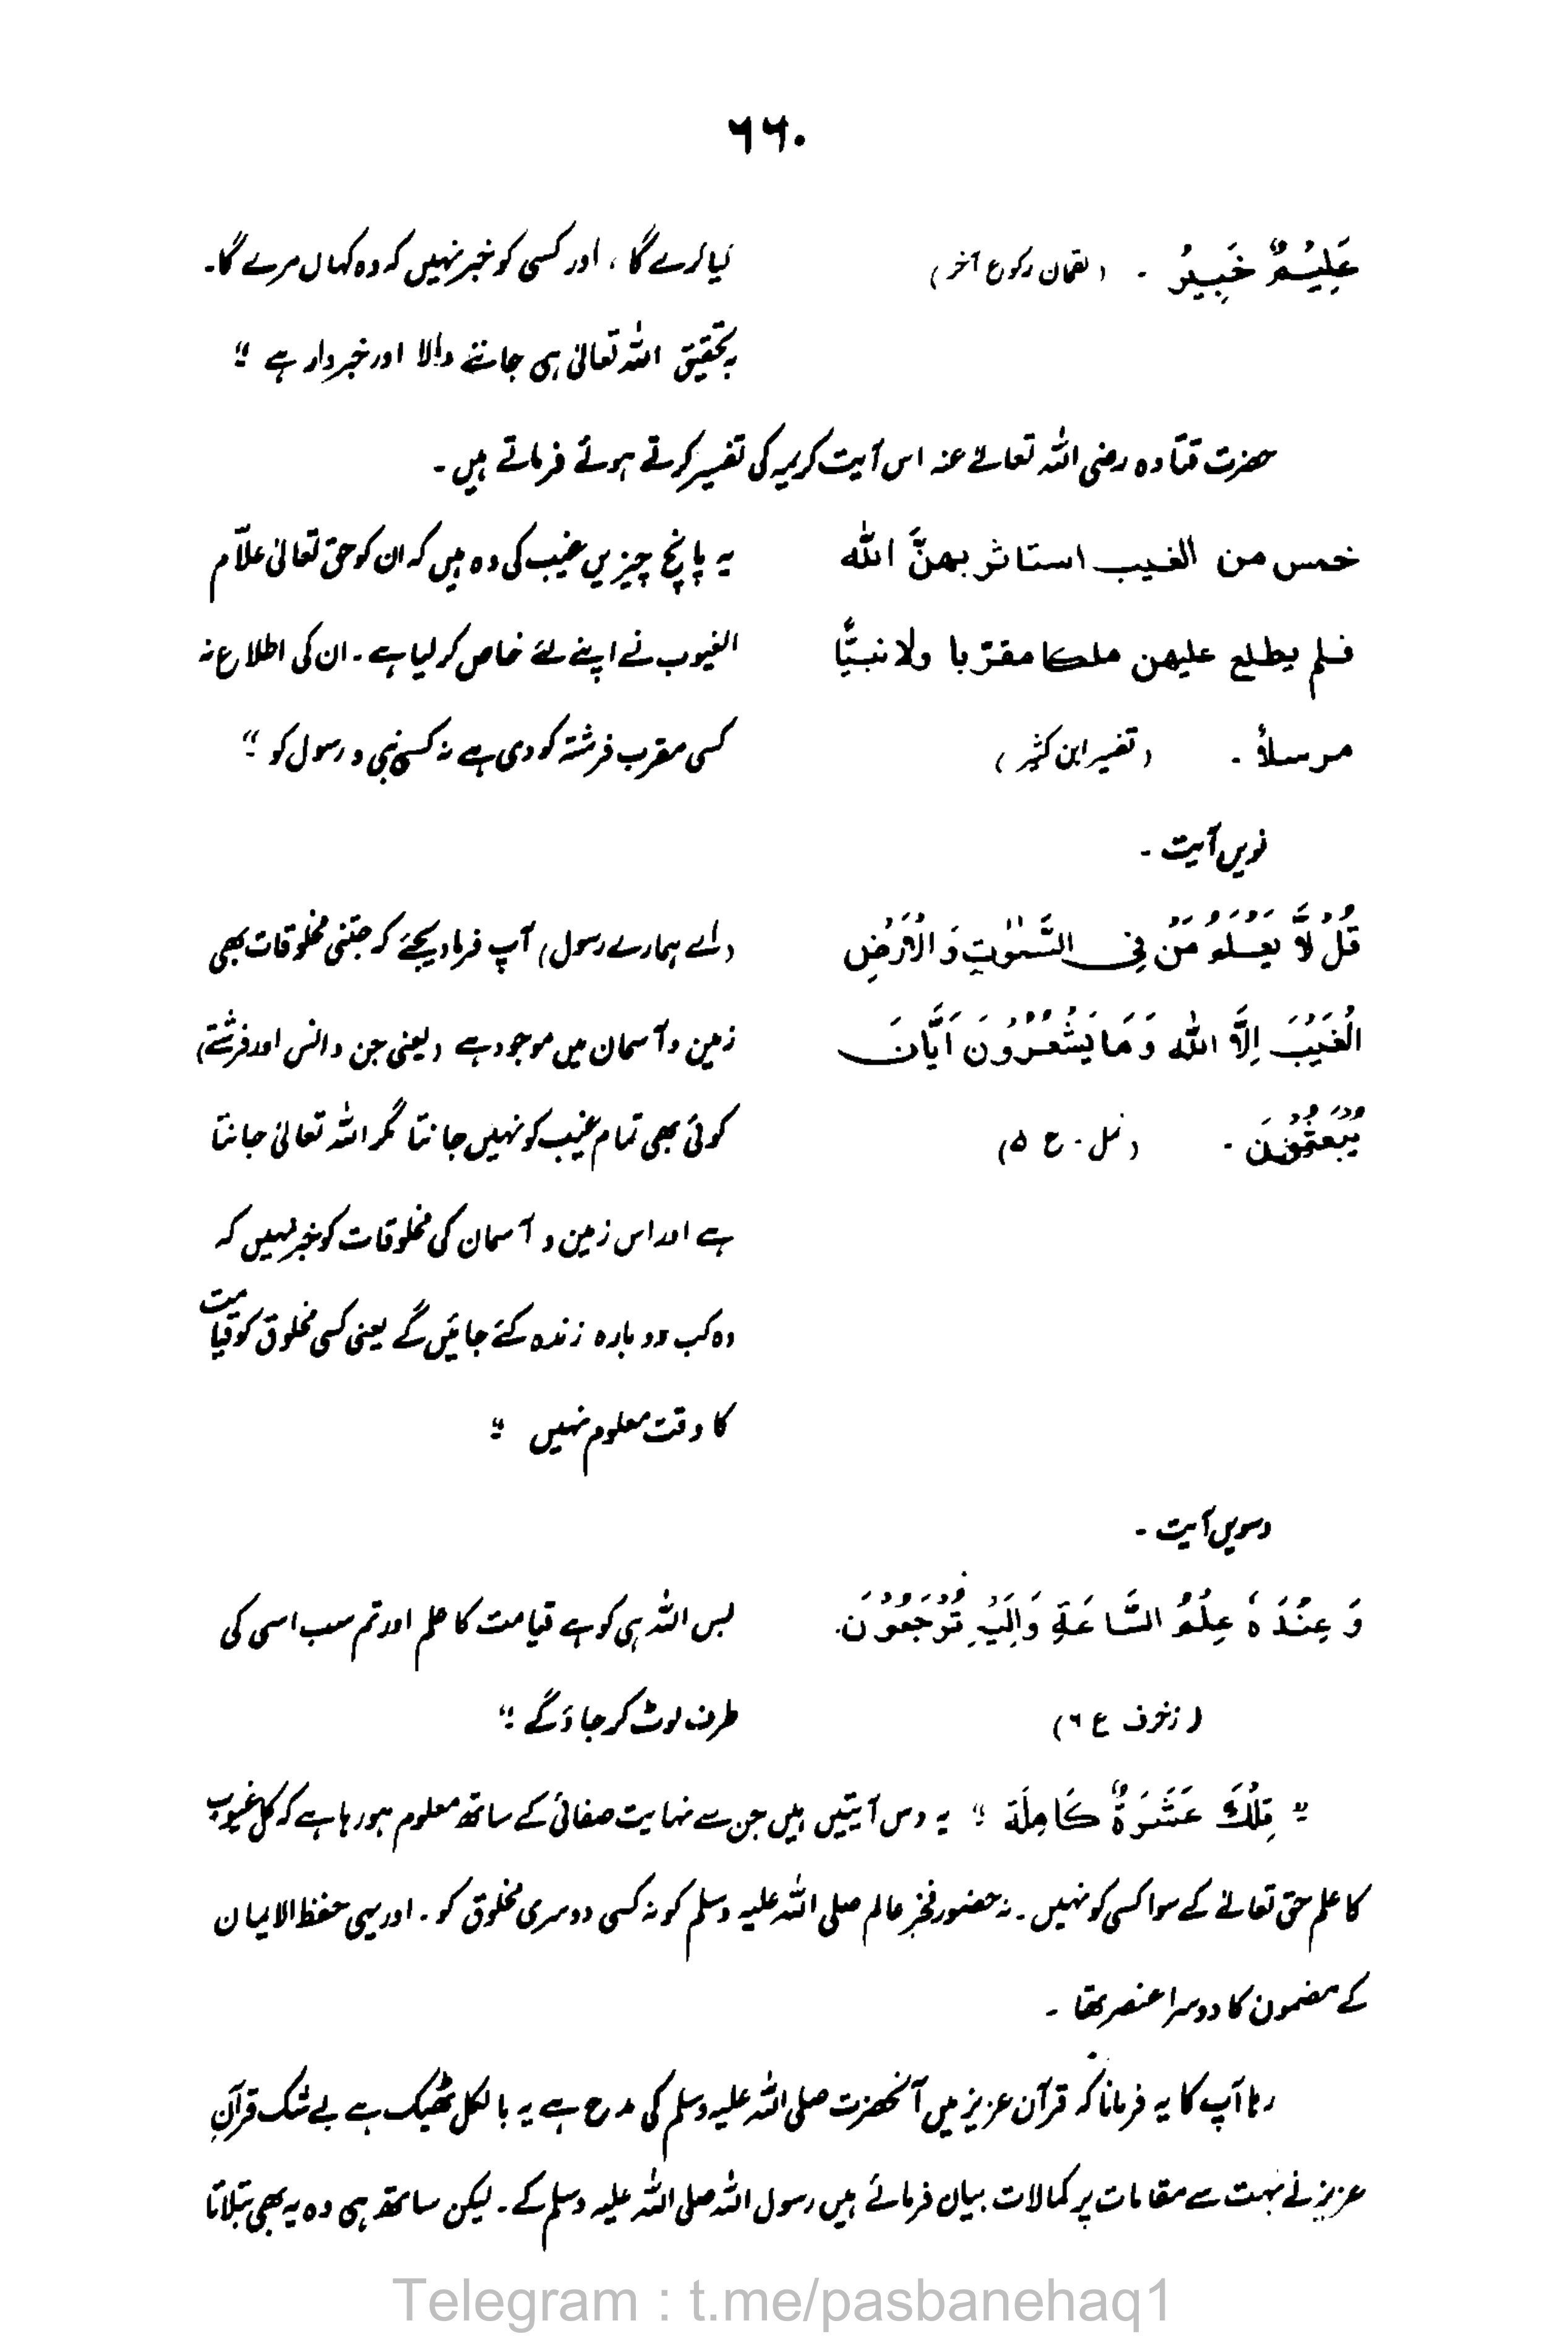 ۶۶۰
عَلِيْمٌ خَبِيرٌ ۔ (لقمان رکوع آخر) کیا کرے گا ، اور کسی کو خبر نہیں کہ وہ کہاں مرے گا۔
بہ تحقیق اللہ تعالیٰ ہی جاننے والا اور خبردار ہے ؛؛
حضرت قتادہ رضی اللہ تعالےٰ عنہ اس آیت کریمہ کی تفسیر کرتے ہوئے فرماتے ہیں ۔
خمس من الغیب استاثر بھنَّ اللہ یہ پانچ چیزیں غیب کی وہ ہیں کہ ان کو حق تعالیٰ علاّم
فلم یطلع علیھن ملکا مقرّبا ولا نبیًّا الغیوب نے اپنے لئے خاص کر لیا ہے ۔ ان کی اطلاع نہ
مرسلاً ۔ (تفسیر ابن کثیر) کسی مقرب فرشتہ کو دی ہے نہ کسی نبی و رسول کو ؛؛
نویں آیت ۔
قُلْ لَّا يَعْلَمُ مَنْ فِي السَّمٰوٰتِ وَ الْاَرْضِ (اے ہمارے رسول) آپ فرما دیجئے کہ جتنی مخلوقات بھی
الْغَيْبَ اِلَّا اللہ وَ مَا يَشْعُرُوْنَ اَيَّانَ زمین و آسمان میں موجود ہے (یعنی جن و انس اور فرشتے)
يُبْعَثُوْنَ ۔ (نمل ۔ ع ۵) کوئی بھی تمام غیب کو نہیں جانتا مگر اللہ تعالیٰ جانتا
ہے اور اس زمین و آسمان کی مخلوقات کو خبر نہیں کہ
وہ کب دوبارہ زندہ کئے جائیں گے یعنی کسی مخلوق کو قیامت
کا وقت معلوم نہیں ؛؛
دسویں آیت ۔
وَ عِنْدَہٗ عِلْمُ السَّاعَةِ وَاِلَيْهِ تُرْجَعُوْنَ۔ بس اللہ ہی کو ہے قیامت کا علم اور تم سب اسی کی
(زخرف ع ۶) طرف لوٹ کر جاؤ گے ؛؛
" تِلْكَ عَشَرَةٌ كَامِلَة " یہ دس آیتیں ہیں جن سے نہایت صفائی کے ساتھ معلوم ہو رہا ہے کہ کل غیوب
کا علم حق تعالےٰ کے سوا کسی کو نہیں ۔ نہ حضور فخر عالم صلی اللہ علیہ وسلم کو نہ کسی دوسری مخلوق کو ۔ اور یہی حفظ الایمان
کے مضمون کا دوسرا عنصر تھا ۔
رہا آپ کا یہ فرمانا کہ قرآن عزیز میں آنحضرت صلی اللہ علیہ وسلم کی مدح ہے یہ بالکل ٹھیک ہے بے شک قرآنِ
عزیز نے بہت سے مقامات پر کمالات بیان فرمائے ہیں رسول اللہ صلی اللہ علیہ وسلم کے ۔ لیکن ساتھ ہی وہ یہ بھی بتلاتا
Telegram : t.me/pasbanehaq1